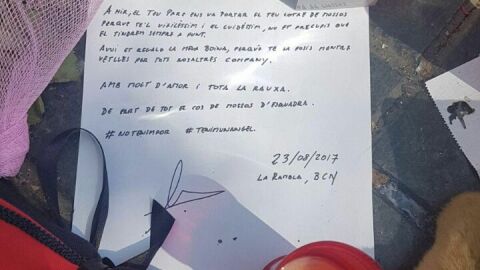 A NIR, EL TEU PARE ENS VA PORTAR EL TEU COTXE DE MOSSOS
PERQUÈ TE'L VIGILÉSSIM I EL CUIDÉSSIM, NO ET PREOCUPIS QUE
EL TINDREM SEMPRE A PUNT.
AVUI ET REGALO LA MEVA BOINA, PERQUÈ TE LA POSIS MENTRE
VETLLES PER TOTS NOSALTRES COMPANY.
AMB MOLT D'AMOR I TOTA LA RAUXA.
DE PART DE TOT EL COS DE MOSSOS D'ESQUADRA.
#NOTENIMPOR #TENIMUNANGEL.
23/08/2017
LA RAMBLA, BCN